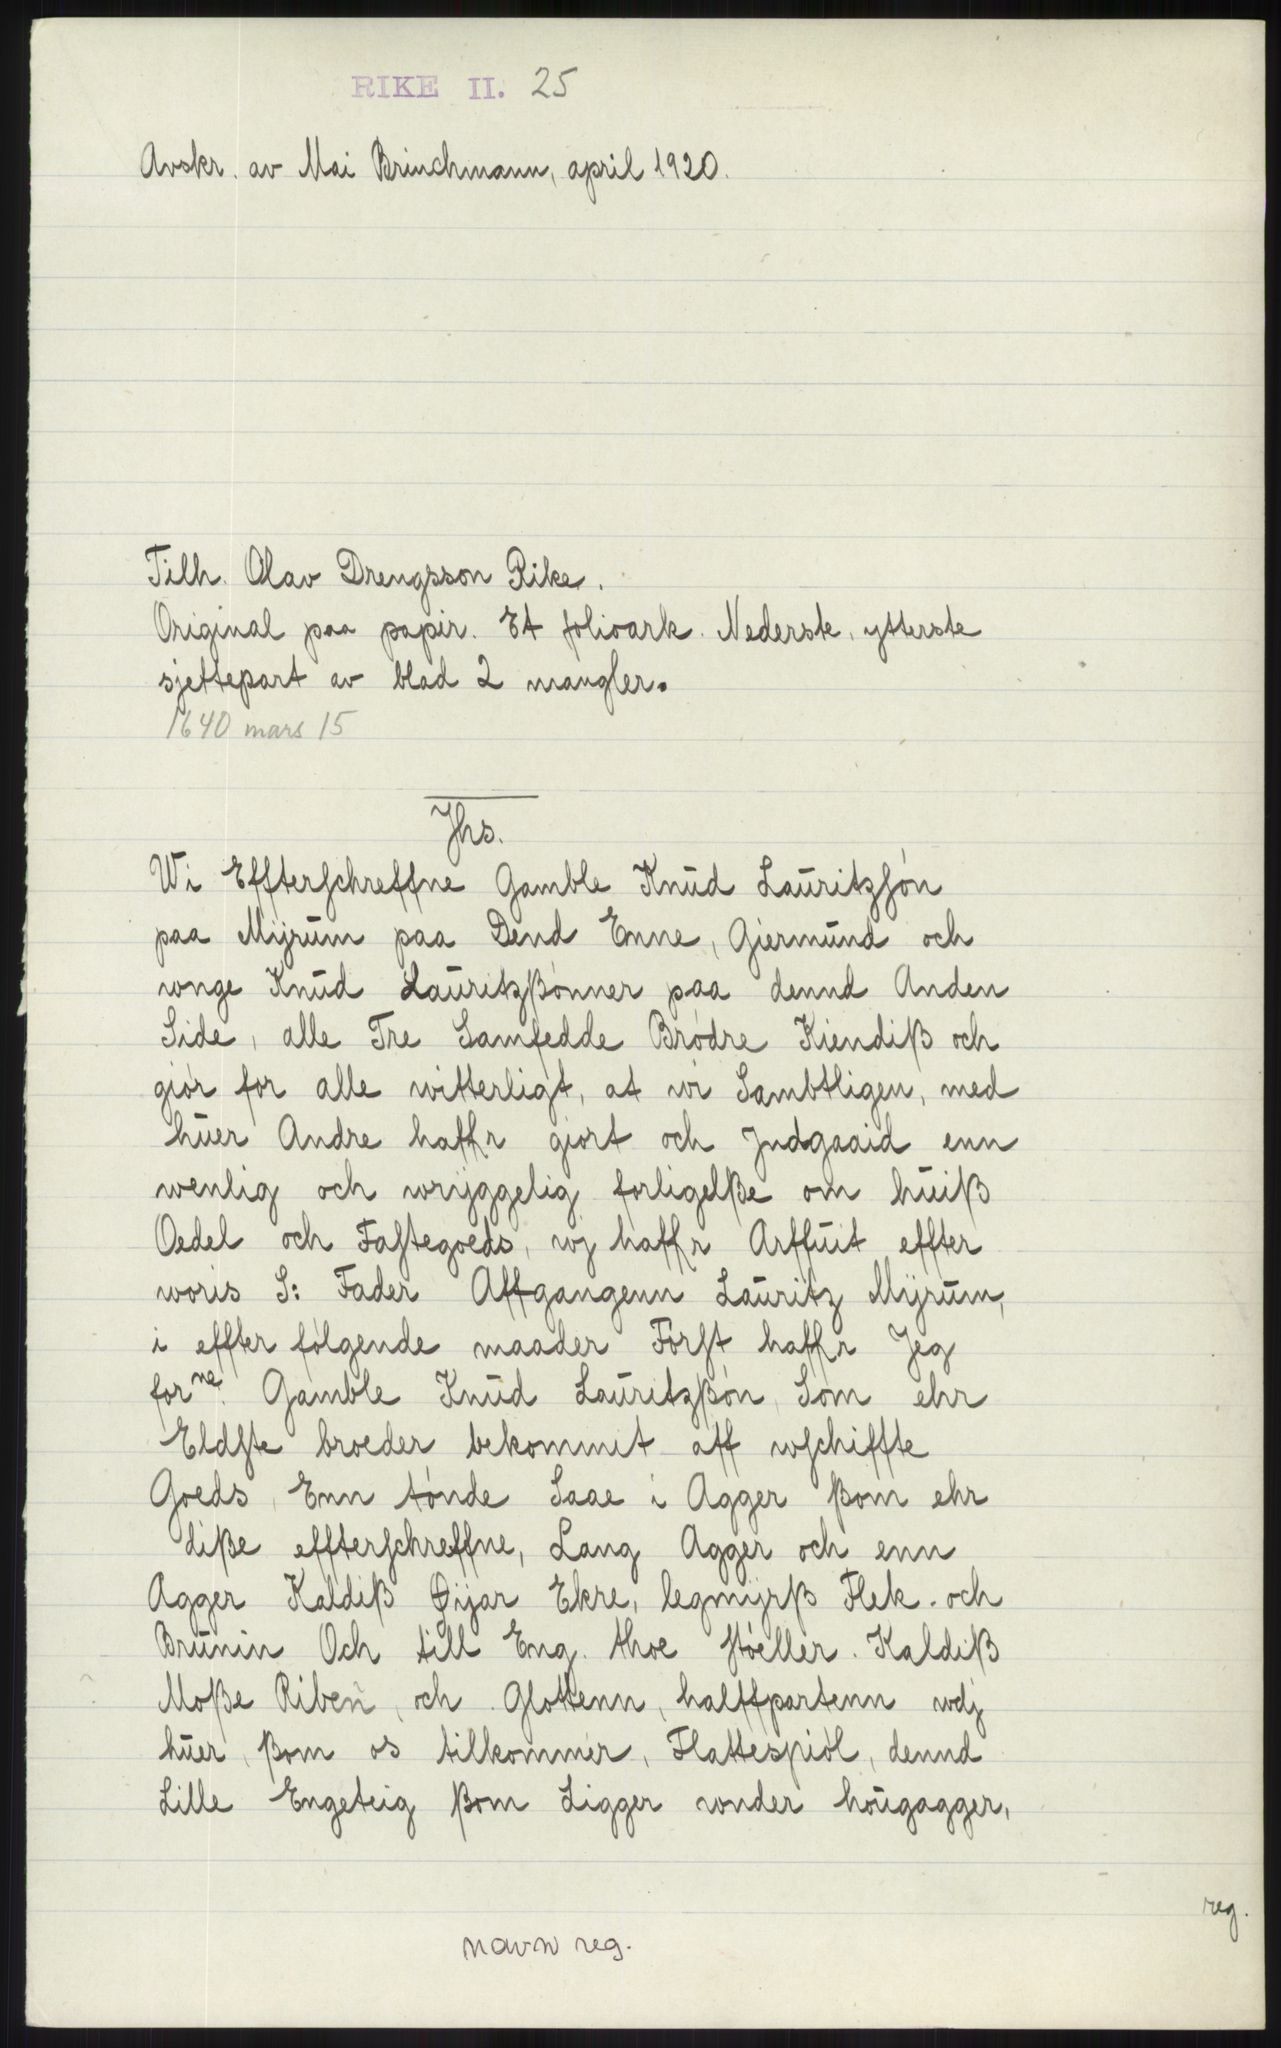 RIKE II. 25
Avskr. av Mai Brinchmann, april 1920.
Tilh. Olav Drengsson Rike.
Original paa papir. Et folioark. Nederste, ytterste
sjettepart av blad 2 mangler.
1640 mars 15
Jhs.
Wi Effterschreffne Gamble Knud Lauritzsón
paa Mÿrum paa Dend Enne, Giermund och
wnge Knud Lauritzßónner paa dennd Anden
Side, alle Tre Samfedde Bródre Kiendiß och
giór for alle witterligt, at wi Sambtligen, med
huer Andre haffr giort och Jndgaaid enn
wenlig och wrÿggelig forligelße om huiß
Oedel och Fastegoeds, wj haffr Arffuit effter
woris S: Fader Affgangenn Lauritz Mÿrum,
i effter fólgende maader Fórst haffr Jeg
forne. Gamble Knud Lauritzßón, Som ehr
Eldste broeder bekommit aff wschiffte
Goeds, Enn tónde Saae i Agger ßom ehr
diße effterschreffne, Lang Agger och enn
Agger Kaldiß Øÿar Ekre, legmÿrß Flek. och
Brunin Och till Eng. thoe stóeller. Kaldiß
Moße Riben, och Glottenn, halffpartenn wdj
huer, ßom os tilkommer, Flattespiól, dennd
Lille Engeteig ßom Ligger wnder hóugagger,
reg.
navn reg.